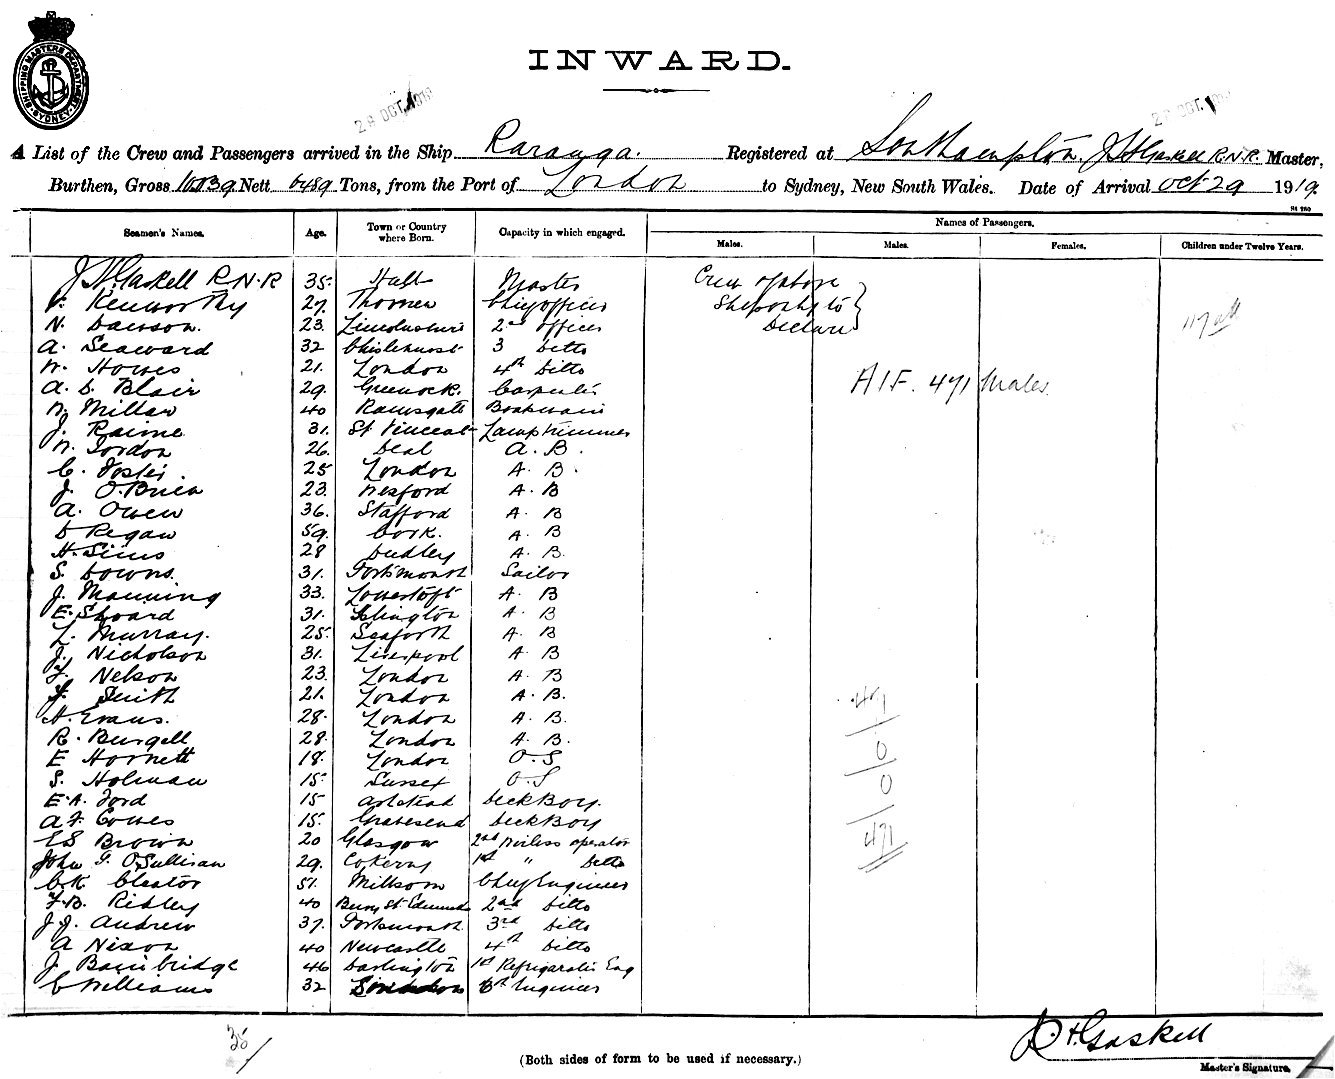 SHIPPING MASTERS DEPARTMENT SYDNEY
INWARD.
29 OCT. 1919
A List of the Crew and Passengers arrived in the Ship Raranga. Registered at Southampton. J H Gaskell R.N.R. Master,
Burthen, Gross 10039 Nett 6489 Tons, from the Port of London to Sydney, New South Wales. Date of Arrival Oct 29 1919.
Names of Passengers.
Seamen's Names. Age. Town or Country where Born. Capacity in which engaged. Males. Males. Females. Children under Twelve Years.
J H Gaskell R.N.R 35 Hull Master Crew of above
Kenworthy 27. chief officer Ship
N. Dawson. 23. Lincolnshire 2nd officer
A. Seaward 32 Chislehurst 3 ditto
W. Howes 21. London 4th ditto
A. D. Blair 29. Greenock. Carpenter A I F. 471 Males.
W. Millar 40 Ramsgate Boatswain
J. Raime 31. St Vincent Lamp trimmer
W. Gordon 26. Deal A. B.
C. Foster 25 London A. B.
J. O'Brien 23. Wexford A. B
A. Owen 36. Stafford A. B
D Regan 59. Cork. A. B
H. Sims 28 Dudley A. B.
S. Downs. 31. Portsmouth Sailor
J. Manning 33. Lowestoft A. B
E. Shoard 31. Islington A. B
L. Murray. 25. Seaforth A. B
J. Nicholson 31. Liverpool A. B
F. Nelson 23. London A. B
F. Smith 21. London A. B.
H. Evans. 28. London A. B.
R. Burgell 28. London A. B.
E Hornett 18. London O. S
S. Holman 15. Sussex O. S
E. A. Ford 15 Deck Boy.
A F Cowes 15. Gravesend Deck Boy
E S Brown 20 Glasgow 2nd wireless operator
John F. O'Sullivan 29. Co Kerry 1st " ditto
C K Cleator 51. Millsom Chief Engineer
F. B. Ridley 40 Bury St. Edmunds 2nd ditto
J. J. Andrew 37. Portsmouth. 3rd ditto
A Nixon 40 Newcastle 4th ditto
J Bainbridge 46 Darlington 1st Refrigerator Eng
C Williams 32 London 6th Engineer
471
0
0
471
35
J H Gaskell
(Both sides of form to be used if necessary.)
Master's Signature.